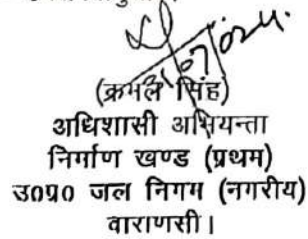 (क्रमल सिंह)
अधिशासी अभियन्ता
निर्माण खण्ड (प्रथम)
उ0प्र0 जल निगम (नगरीय)
वाराणसी।